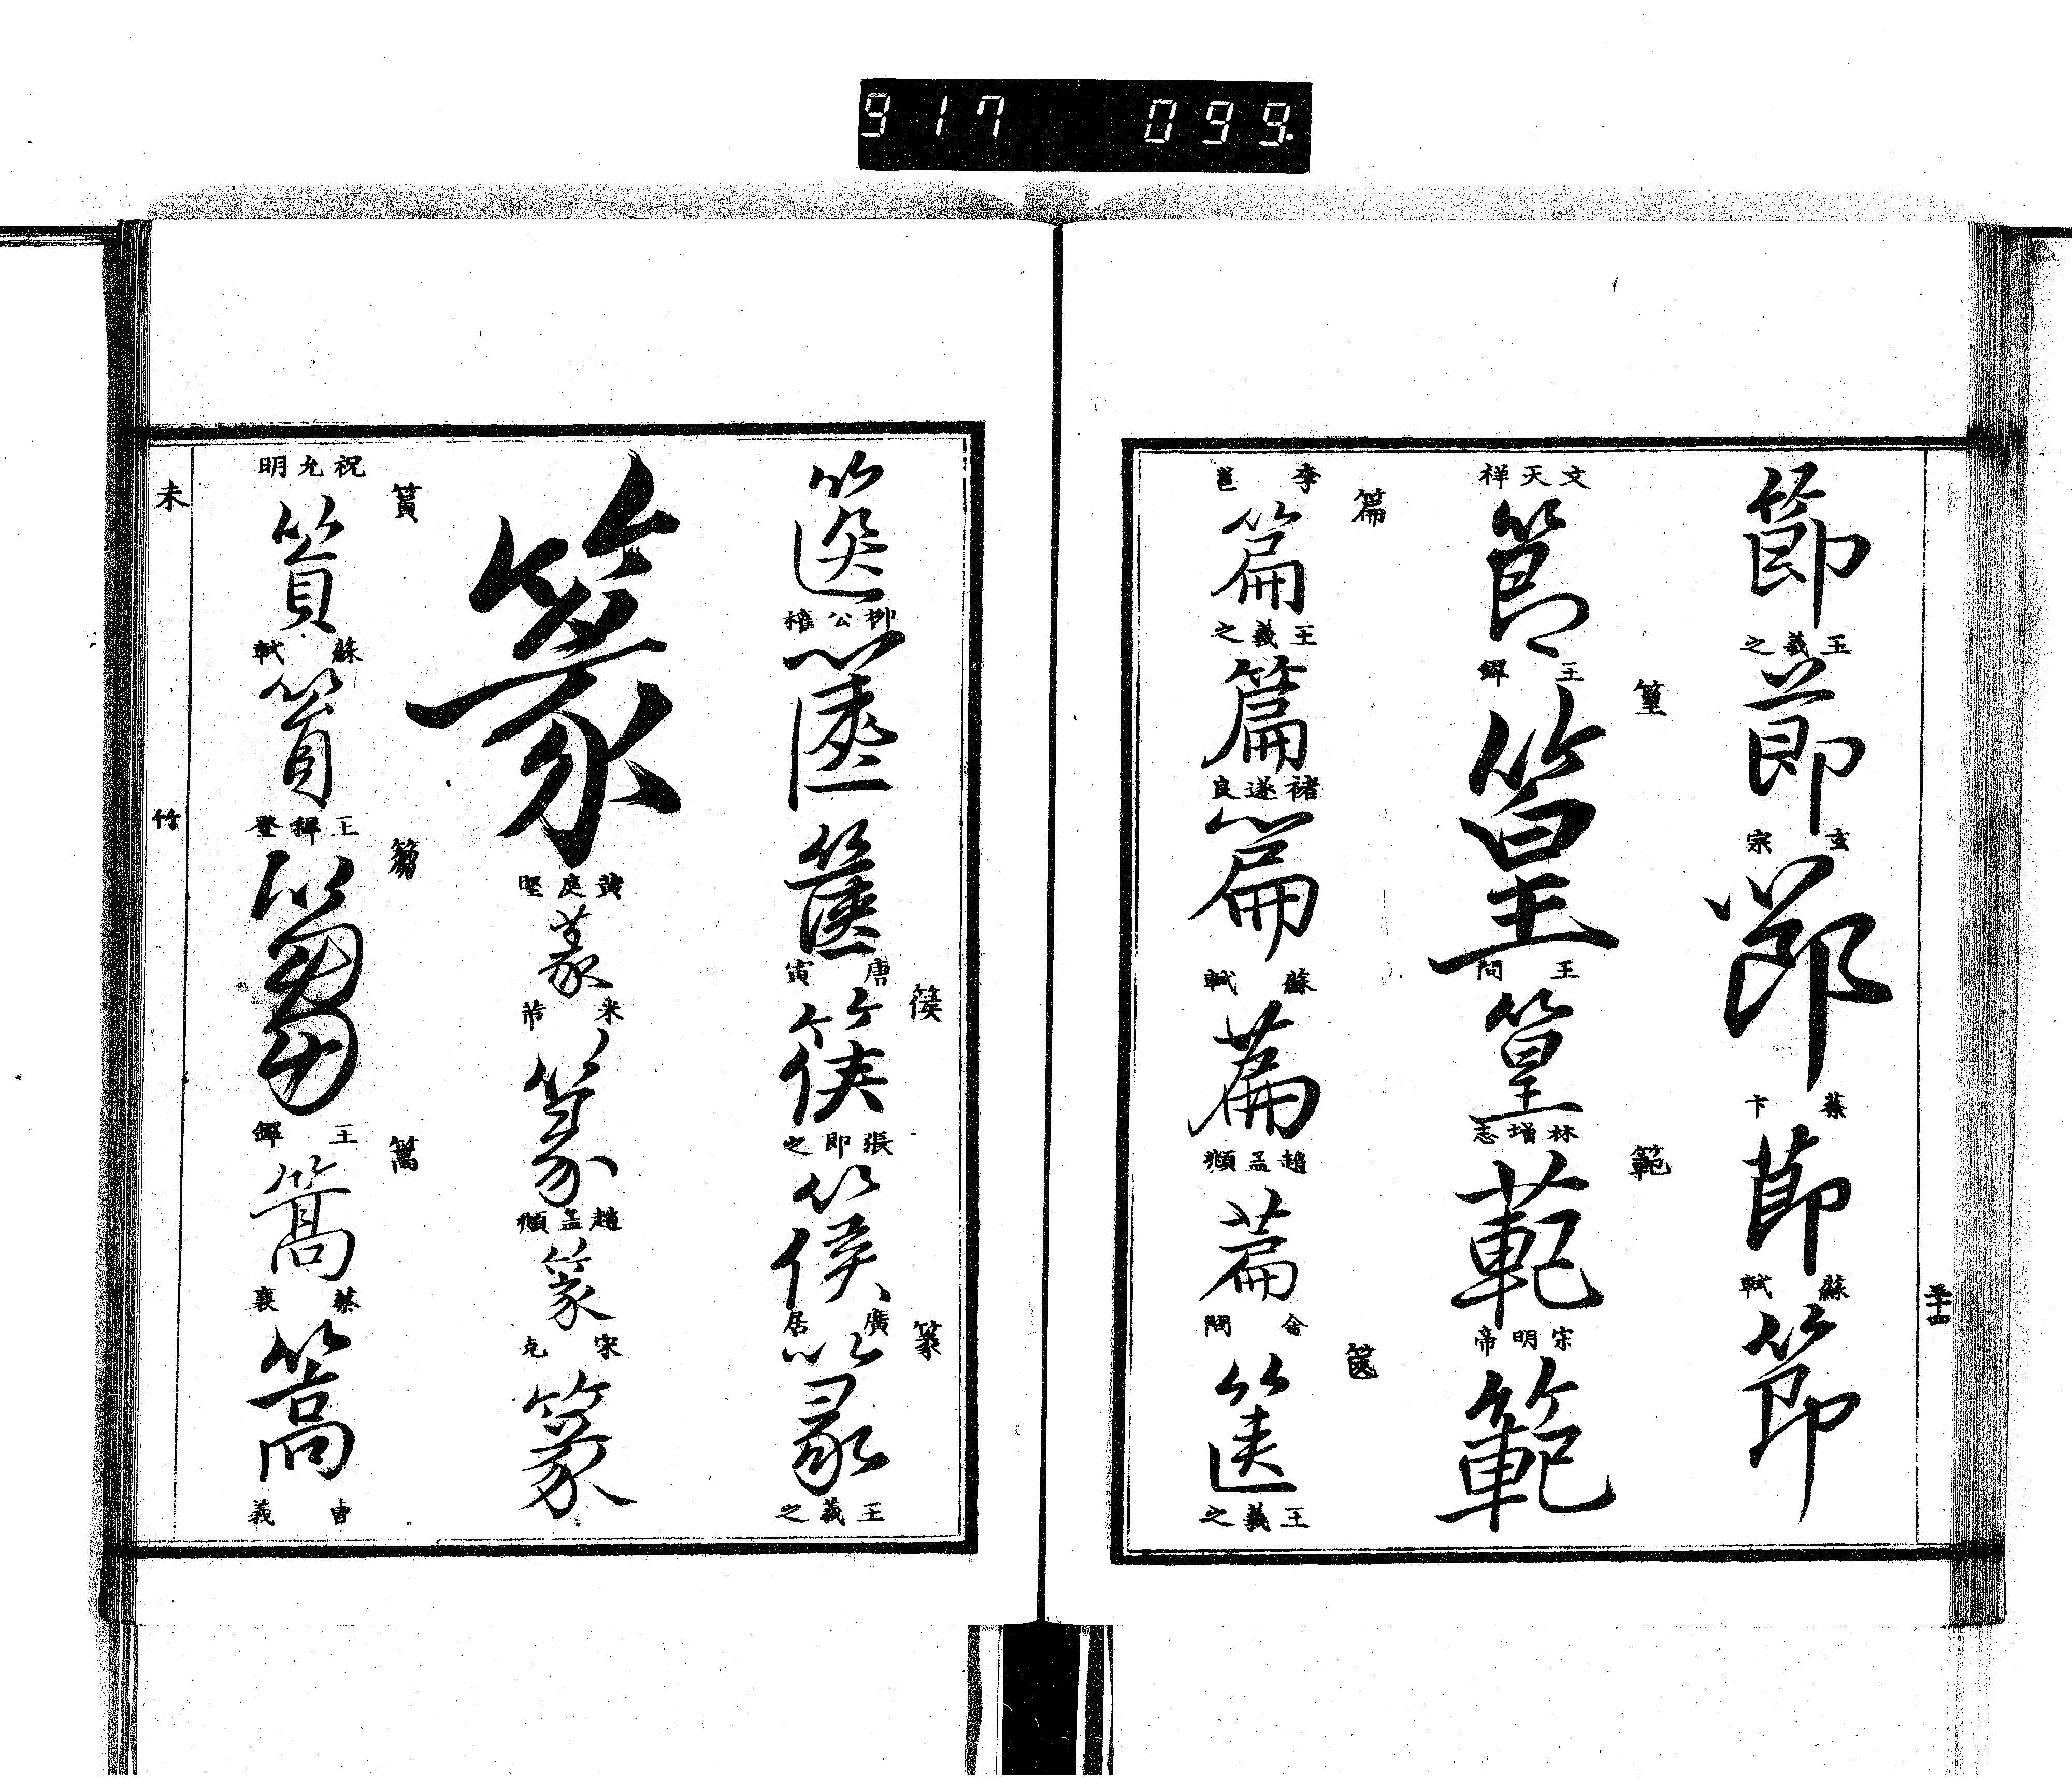 917 099
節
王羲之
節
玄宗
節
蔡卞
節
蘇軾
節
五十四
文天祥
節
王鐸
篁
篁
王問
篁
林增志
範
範
宋明帝
範
李邕
篇
篇
王羲之
篇
褚遂良
篇
蘇軾
篇
趙孟頫
篇
篋
王羲之
篋
柳公權
篋
篋
唐寅
篌
篌
張即之
篌
篆
王羲之
篆
黃庭堅
篆
米芾
篆
趙孟頫
篆
宋克
篆
祝允明
篔
篔
蘇軾
篔
王穉登
篘
篘
王鐸
篙
篙
蔡襄
篙
未
竹